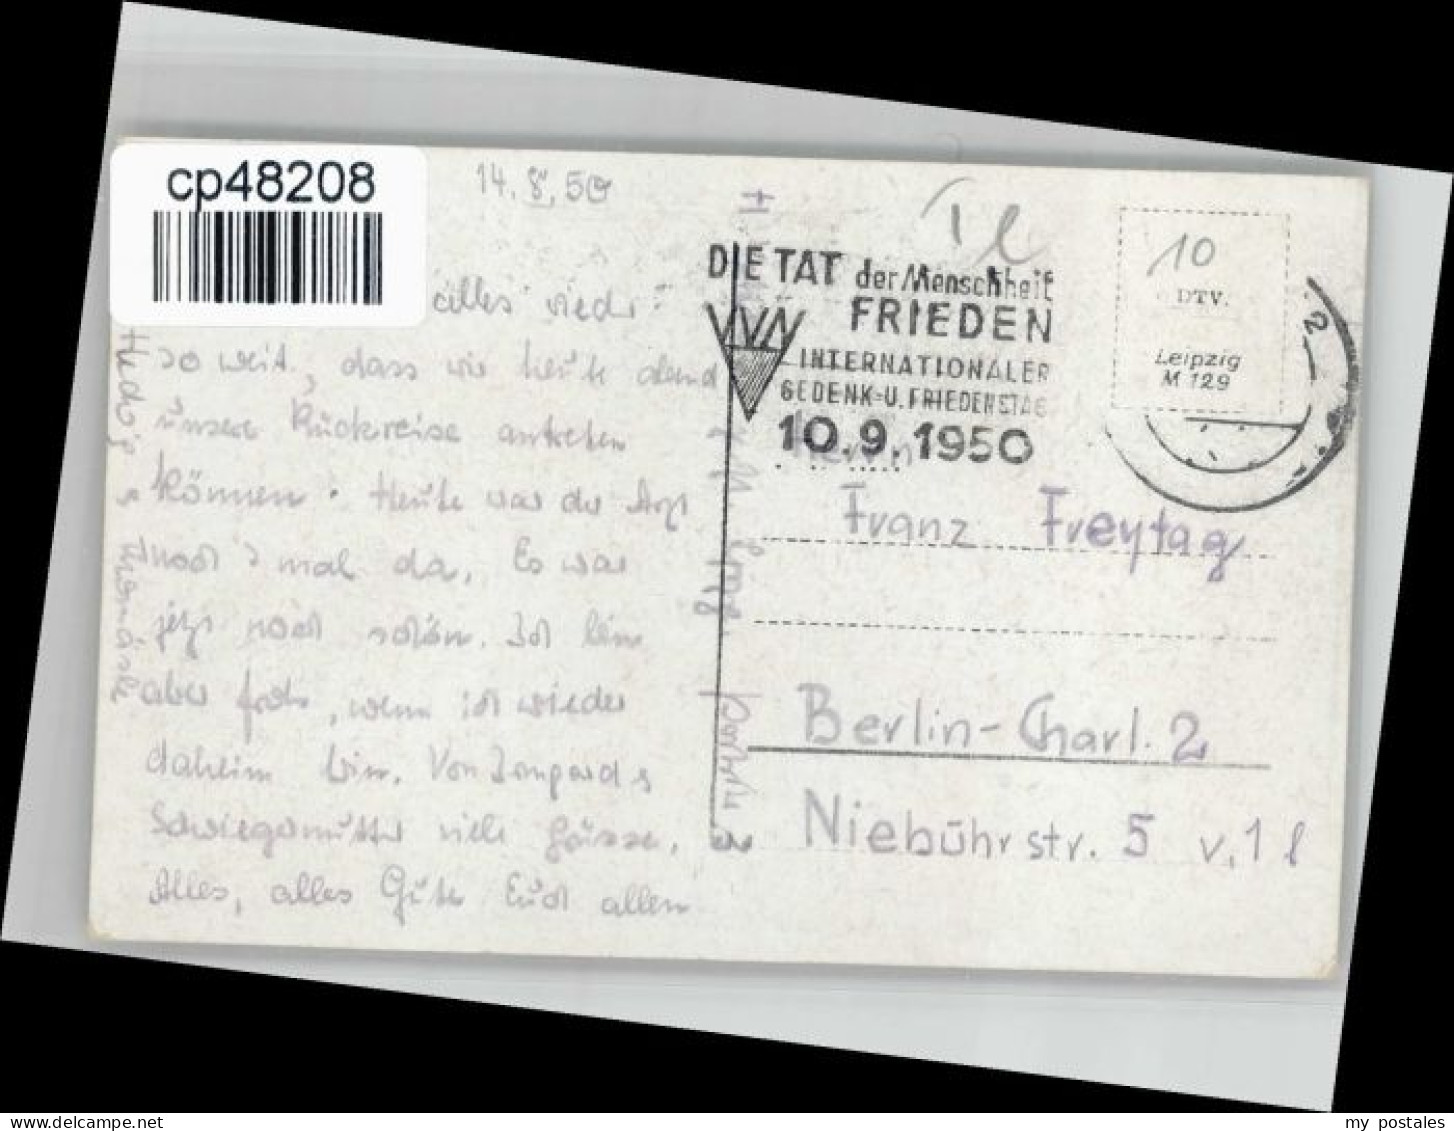 cp48208
14. 8. 50
alles wieder
so weit, dass wir heute abend
unsere Rückreise antreten
können. Heute war der Arzt
noch 'mal da. Es war
jetzt noch schön. Ich bin
aber froh, wenn ich wieder
daheim bin. Von
Schwiegermutter viele Grüsse.
Alles, alles Gute Euch allen
DIE TAT der Menschheit
FRIEDEN
VVN
INTERNATIONALER
GEDENK-U. FRIEDENSTAG
10.9.1950
10
DTV.
Leipzig
M 129
2
Herrn
Franz Freytag
Berlin-Charl. 2
Niebührstr. 5 v. 1 l
my postales